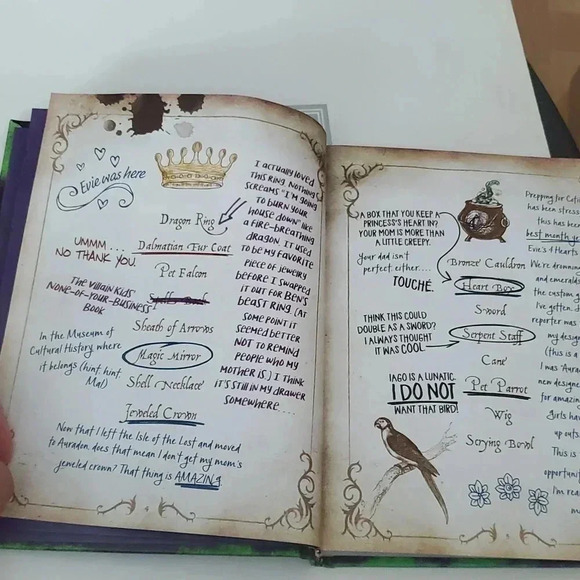 Evie was here
Dragon Ring
UMMM....
NO THANK YOU.
Dalmatian Fur Coat
Pet Falcon
THE VILLAIN KIDS'
NONE-OF-YOUR-BUSINESS
BOOK
Spell Book
Sheath of Arrows
In the Museum of
Cultural History where
it belongs (hint hint
Mal)
Magic Mirror
Shell Necklace
Jeweled Crown
Now that I left the Isle of the Lost and moved
to Auradon, does that mean I don't get my mom's
jeweled crown? That thing is AMAZING
I ACTUALLY LOVED
THIS RING. NOTHING
SCREAMS "I'M GOING
TO BURN YOUR
HOUSE DOWN" LIKE
A FIRE-BREATHING
DRAGON. IT USED
TO BE MY FAVORITE
PIECE OF JEWELRY
BEFORE I SWAPPED
IT OUT FOR BEN'S
BEAST RING. (AT
SOME POINT IT
SEEMED BETTER
NOT TO REMIND
PEOPLE WHO MY
MOTHER IS.) I THINK
IT'S STILL IN MY DRAWER
SOMEWHERE....
A BOX THAT YOU KEEP A
PRINCESS'S HEART IN?
YOUR MOM IS MORE THAN
A LITTLE CREEPY.
Your dad isn't
perfect, either....
TOUCHÉ.
Bronze Cauldron
Heart Box
Sword
THINK THIS COULD
DOUBLE AS A SWORD?
I ALWAYS THOUGHT
IT WAS COOL
Serpent Staff
Cane
IAGO IS A LUNATIC.
I DO NOT
WANT THAT BIRD!
Pet Parrot
Wig
Scrying Bowl
Prepping for
has been
this has been
best month
Evie's 4 Hearts
the custom
I've gotten.
reporter was
my
(this is a
I was
new
for amazing
up
This is
opportuni
I'm rea